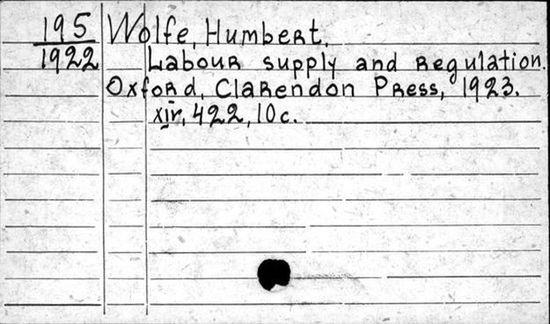 195 Wolfe, Humbert.
1922 Labour supply and regulation.
Oxford, Clarendon Press, 1923.
xiv, 422, 10 c.